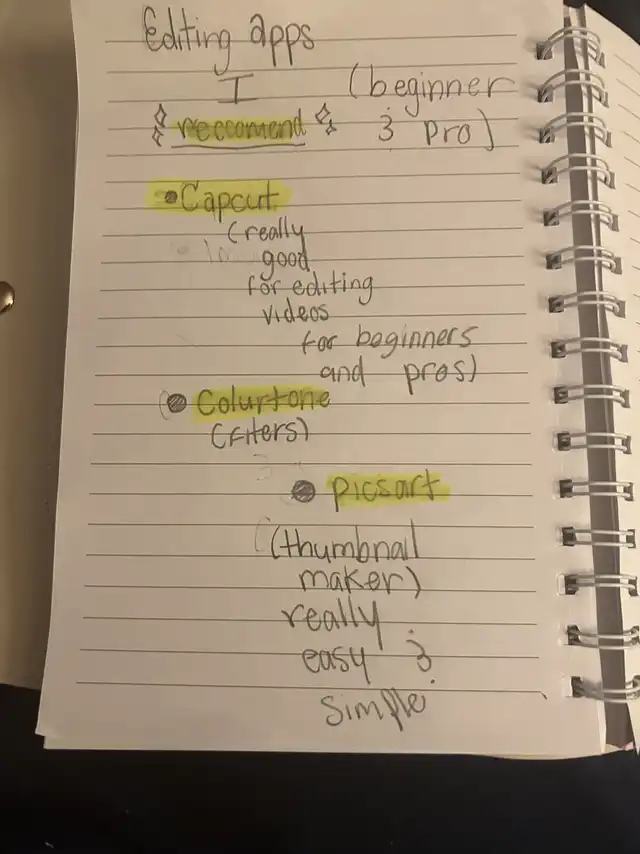 Editing apps
I (beginner
reccomend & pro)
•Capcut
(really
good
for editing
videos
for beginners
and pros)
• Colurtone
(Fiters)
• picsart
(thumbnail
maker)
really
easy &
simple